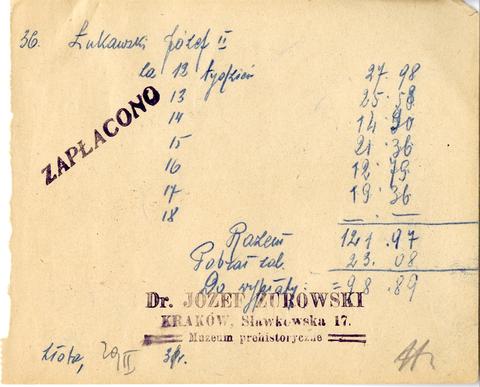 36. Łukawski Józef II
za 12 tydzień 27.98
13 25.58
14 14.90
15 21.36
16 12.79
17 19.36
18 —.—
ZAPŁACONO
Razem 121.97
Pobrał zal. 23.08
Do wypłaty: = 98.89
Dr. JÓZEF ŻUROWSKI
KRAKÓW, Sławkowska 17.
Muzeum prehistoryczne
Złota,